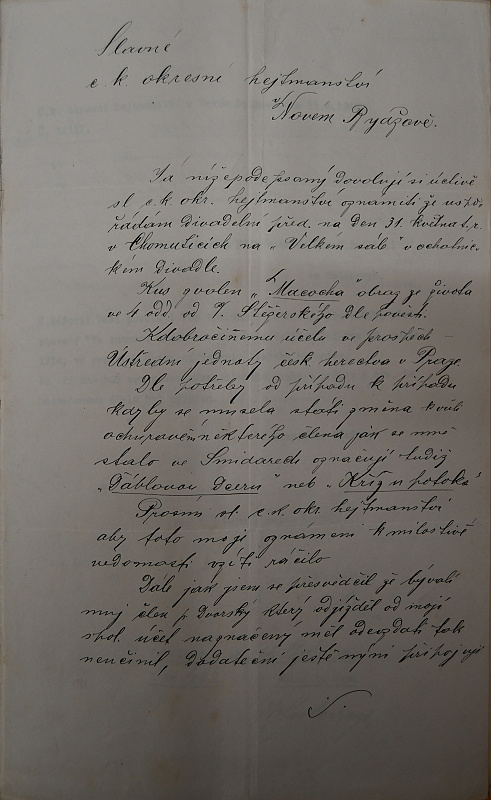 Slavné
c. k. okresní hejtmanství
Novem Rydžově.
Já níže podepsaný dovoluji si úctivě
sl. c. k. okr. hejtmanství oznámiti že uspo-
řádám divadelní před. na den 31. května t.r.
v Chomuticích na „Velkém sále" v ochotnic-
kém divadle.
Kus zvolen „Macocha" obraz ze života
ve 4 odd. od F. Stěžerského dle pověsti.
K dobročinému účelu ve prospěch
Ústřední jednoty česk. herectva v Praze.
Dle potřeby od případu k případu
kdyby se musela státi změna kvůli
ochuravění některého člena jak se mně
stalo ve Smidarech označuji tudiž
„Ďáblovou dceru" neb „Kříž u potoka"
Prosím sl. c. k. okr. hejtmanství
aby toto moje oznámení k milostivé
vědomosti vzíti ráčilo
Dále jak jsem se přesvědčil že bývalí
muj člen p. Dvorský který odjížděl od mojí
spol. účet naznačený měl odevzdati tak
neučinil, dodateční ještě nýní připojuji